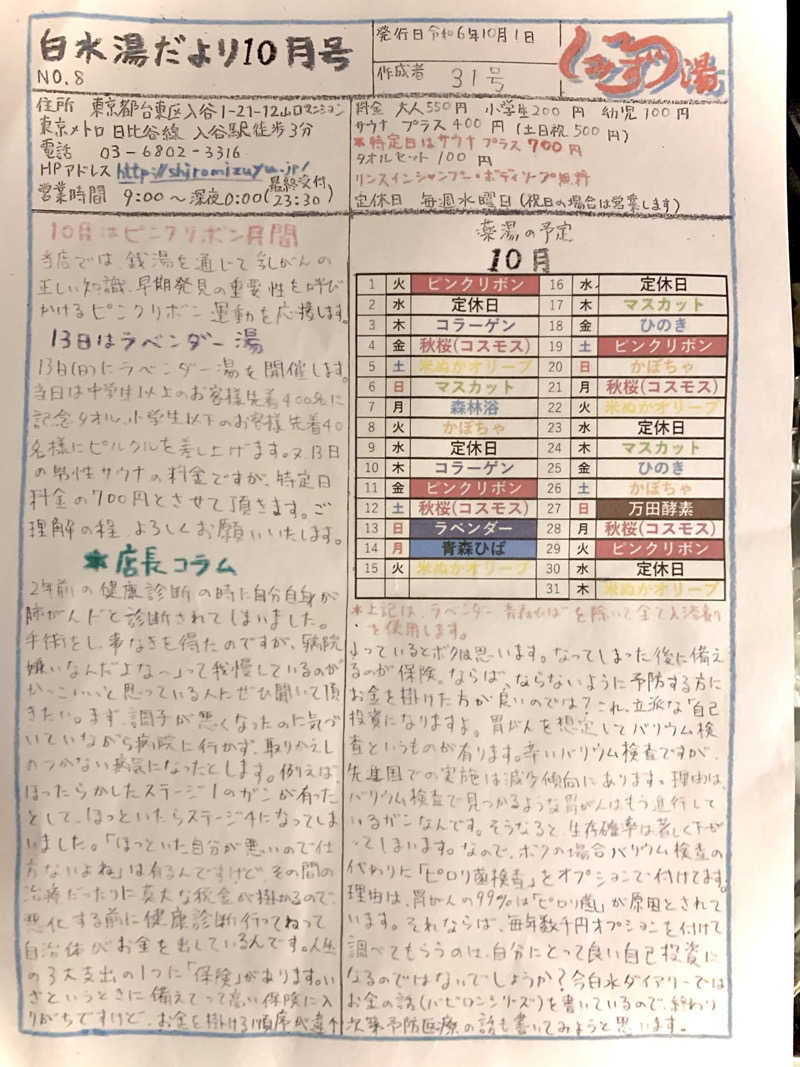 白水湯だより10月号
NO.8
発行日令和6年10月1日
作成者 31号
湯
住所 東京都台東区入谷1-21-12山口マンション
東京メトロ日比谷線 入谷駅徒歩3分
電話 03-6802-3316
HPアドレスhttp://shiromizuyu.jp/
営業時間 9:00～深夜0:00(最終受付23:30)
料金 大人550円 小学生200円 幼児100円
サウナ プラス400円(土日祝500円)
*特定日はサウナプラス700円
タオルセット100円
リンスインシャンプー・ボディソープ無料
定休日 毎週水曜日(祝日の場合は営業します)
10月はピンクリボン月間
当店では銭湯を通じて乳がんの
正しい知識、早期発見の重要性を呼び
かけるピンクリボン運動を応援します。
13日はラベンダー湯
13日(日)にラベンダー湯を開催します。
当日は中学生以上のお客様先着400名に
記念タオル、小学生以下のお客様先着40
名様にピルクルを差し上げます。又、13日
の男性サウナの料金ですが、特定日
料金の700円とさせて頂きます。ご
理解の程、よろしくお願いいたします。
*店長コラム
2年前の健康診断の時に自分自身が
肺がんだと診断されてしまいました。
手術をし、事なきを得たのですが、「病院
嫌いなんだよな～」って我慢しているのが
かっこいいと思っている人にぜひ聞いて頂
きたい。まず、調子が悪くなったのに気づ
いていながら病院に行かず、取りかえし
のつかない病気になったとします。例えば、
ほったらかしたステージ1のガンが有った
として、ほっといたらステージ4になってしま
いました。「ほっといた自分が悪いので仕
方ないよね」は有るんですけど、その間の
治療だったりに莫大な税金が掛かるので、
悪化する前に健康診断行ってねって
自治体がお金を出しているんです。人生
の3大支出の1つに「保険」があります。い
ざというときに備えてって高い保険に入
りがちですけど、お金を掛ける順序が違
薬湯の予定
10月
1 火 ピンクリボン 16 水 定休日
2 水 定休日 17 木 マスカット
3 木 コラーゲン 18 金 ひのき
4 金 秋桜(コスモス) 19 土 ピンクリボン
5 土 米ぬかオリーブ 20 日 かぼちゃ
6 日 マスカット 21 月 秋桜(コスモス)
7 月 森林浴 22 火 米ぬかオリーブ
8 火 かぼちゃ 23 水 定休日
9 水 定休日 24 木 マスカット
10 木 コラーゲン 25 金 ひのき
11 金 ピンクリボン 26 土 かぼちゃ
12 土 秋桜(コスモス) 27 日 万田酵素
13 日 ラベンダー 28 月 秋桜(コスモス)
14 月 青森ひば 29 火 ピンクリボン
15 火 米ぬかオリーブ 30 水 定休日
31 木 米ぬかオリーブ
*上記は、ラベンダー 青森ひばを除いて全て入浴剤
を使用します。
よっているとボクは思います。なってしまった後に備え
るのが保険。ならば、ならないように予防する方に
お金を掛けた方が良いのでは?これ、立派な「自己
投資になりますよ。胃がんを想定してバリウム検
査というものが有ります。辛いバリウム検査ですが、
先進国での実施は減少傾向にあります。理由は、
バリウム検査で見つかるような胃がんはもう進行して
いるガンなんです。そうなると、生存確率は著しく下が
ってしまいます。なので、ボクの場合バリウム検査の
代わりに「ピロリ菌検査」をオプションで付けてます。
理由は、胃がんの99%は「ピロリ菌」が原因とされて
います。それならば、毎年数千円オプションを付けて
調べてもらうのは、自分にとって良い自己投資に
なるのではないでしょうか?今白水ダイアリーでは
お金の話(バビロンシリーズ)を書いているので、終わり
次第予防医療の話も書いてみようと思います。